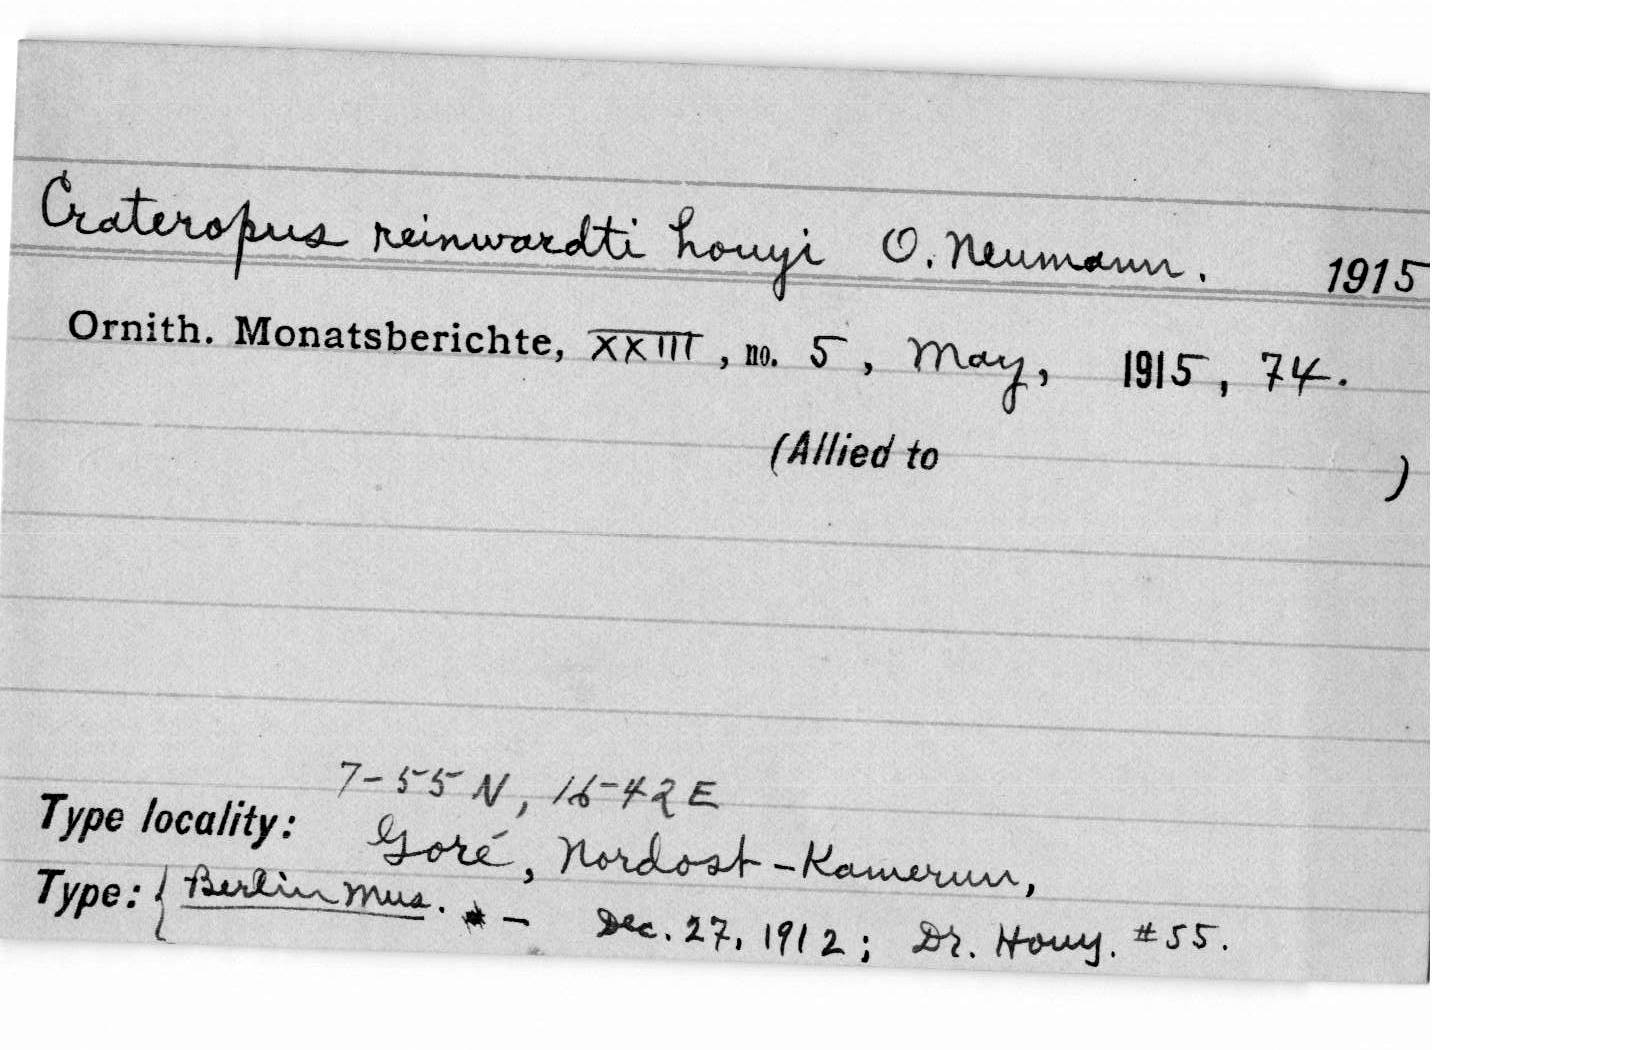 Crateropus reinwardti houyi O. Neumann. 1915
Ornith. Monatsberichte, XXIII, no. 5, May, 1915, 74.
(Allied to )
7-55 N, 16-42 E
Type locality: Goré, Nordost-Kamerun,
Type: { Berlin Mus. - Dec. 27, 1912; Dr. Houy. #55.